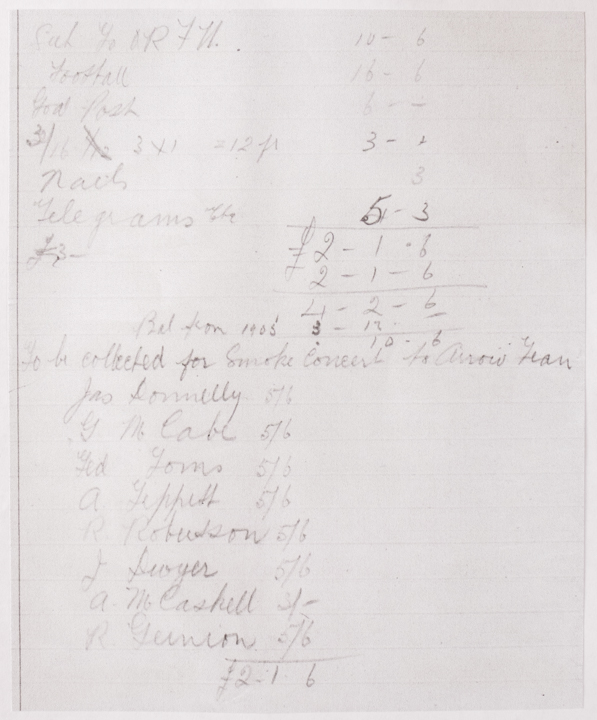 Sub to O R F U. 10 - 6
Football 16 - 6
Goal Posts 6 - -
3/16 3 x 1 = 12 ft 3 - +
Nails 3
Telegrams Etc 5 - 3
£3 - £2 - 1 - 6
2 - 1 - 6
4 - 2 - 6
Bal from 1905 3 - 12 -
10 - 6
To be collected for Smoke Concert to Arrow Team
Jas Donnelly 5/6
G McCabe 5/6
Ted Toms 5/6
A. Tippett 5/6
R. Robertson 5/6
J Dwyer 5/6
A. McCaskell 3/-
R 5/6
£2 - 1 6